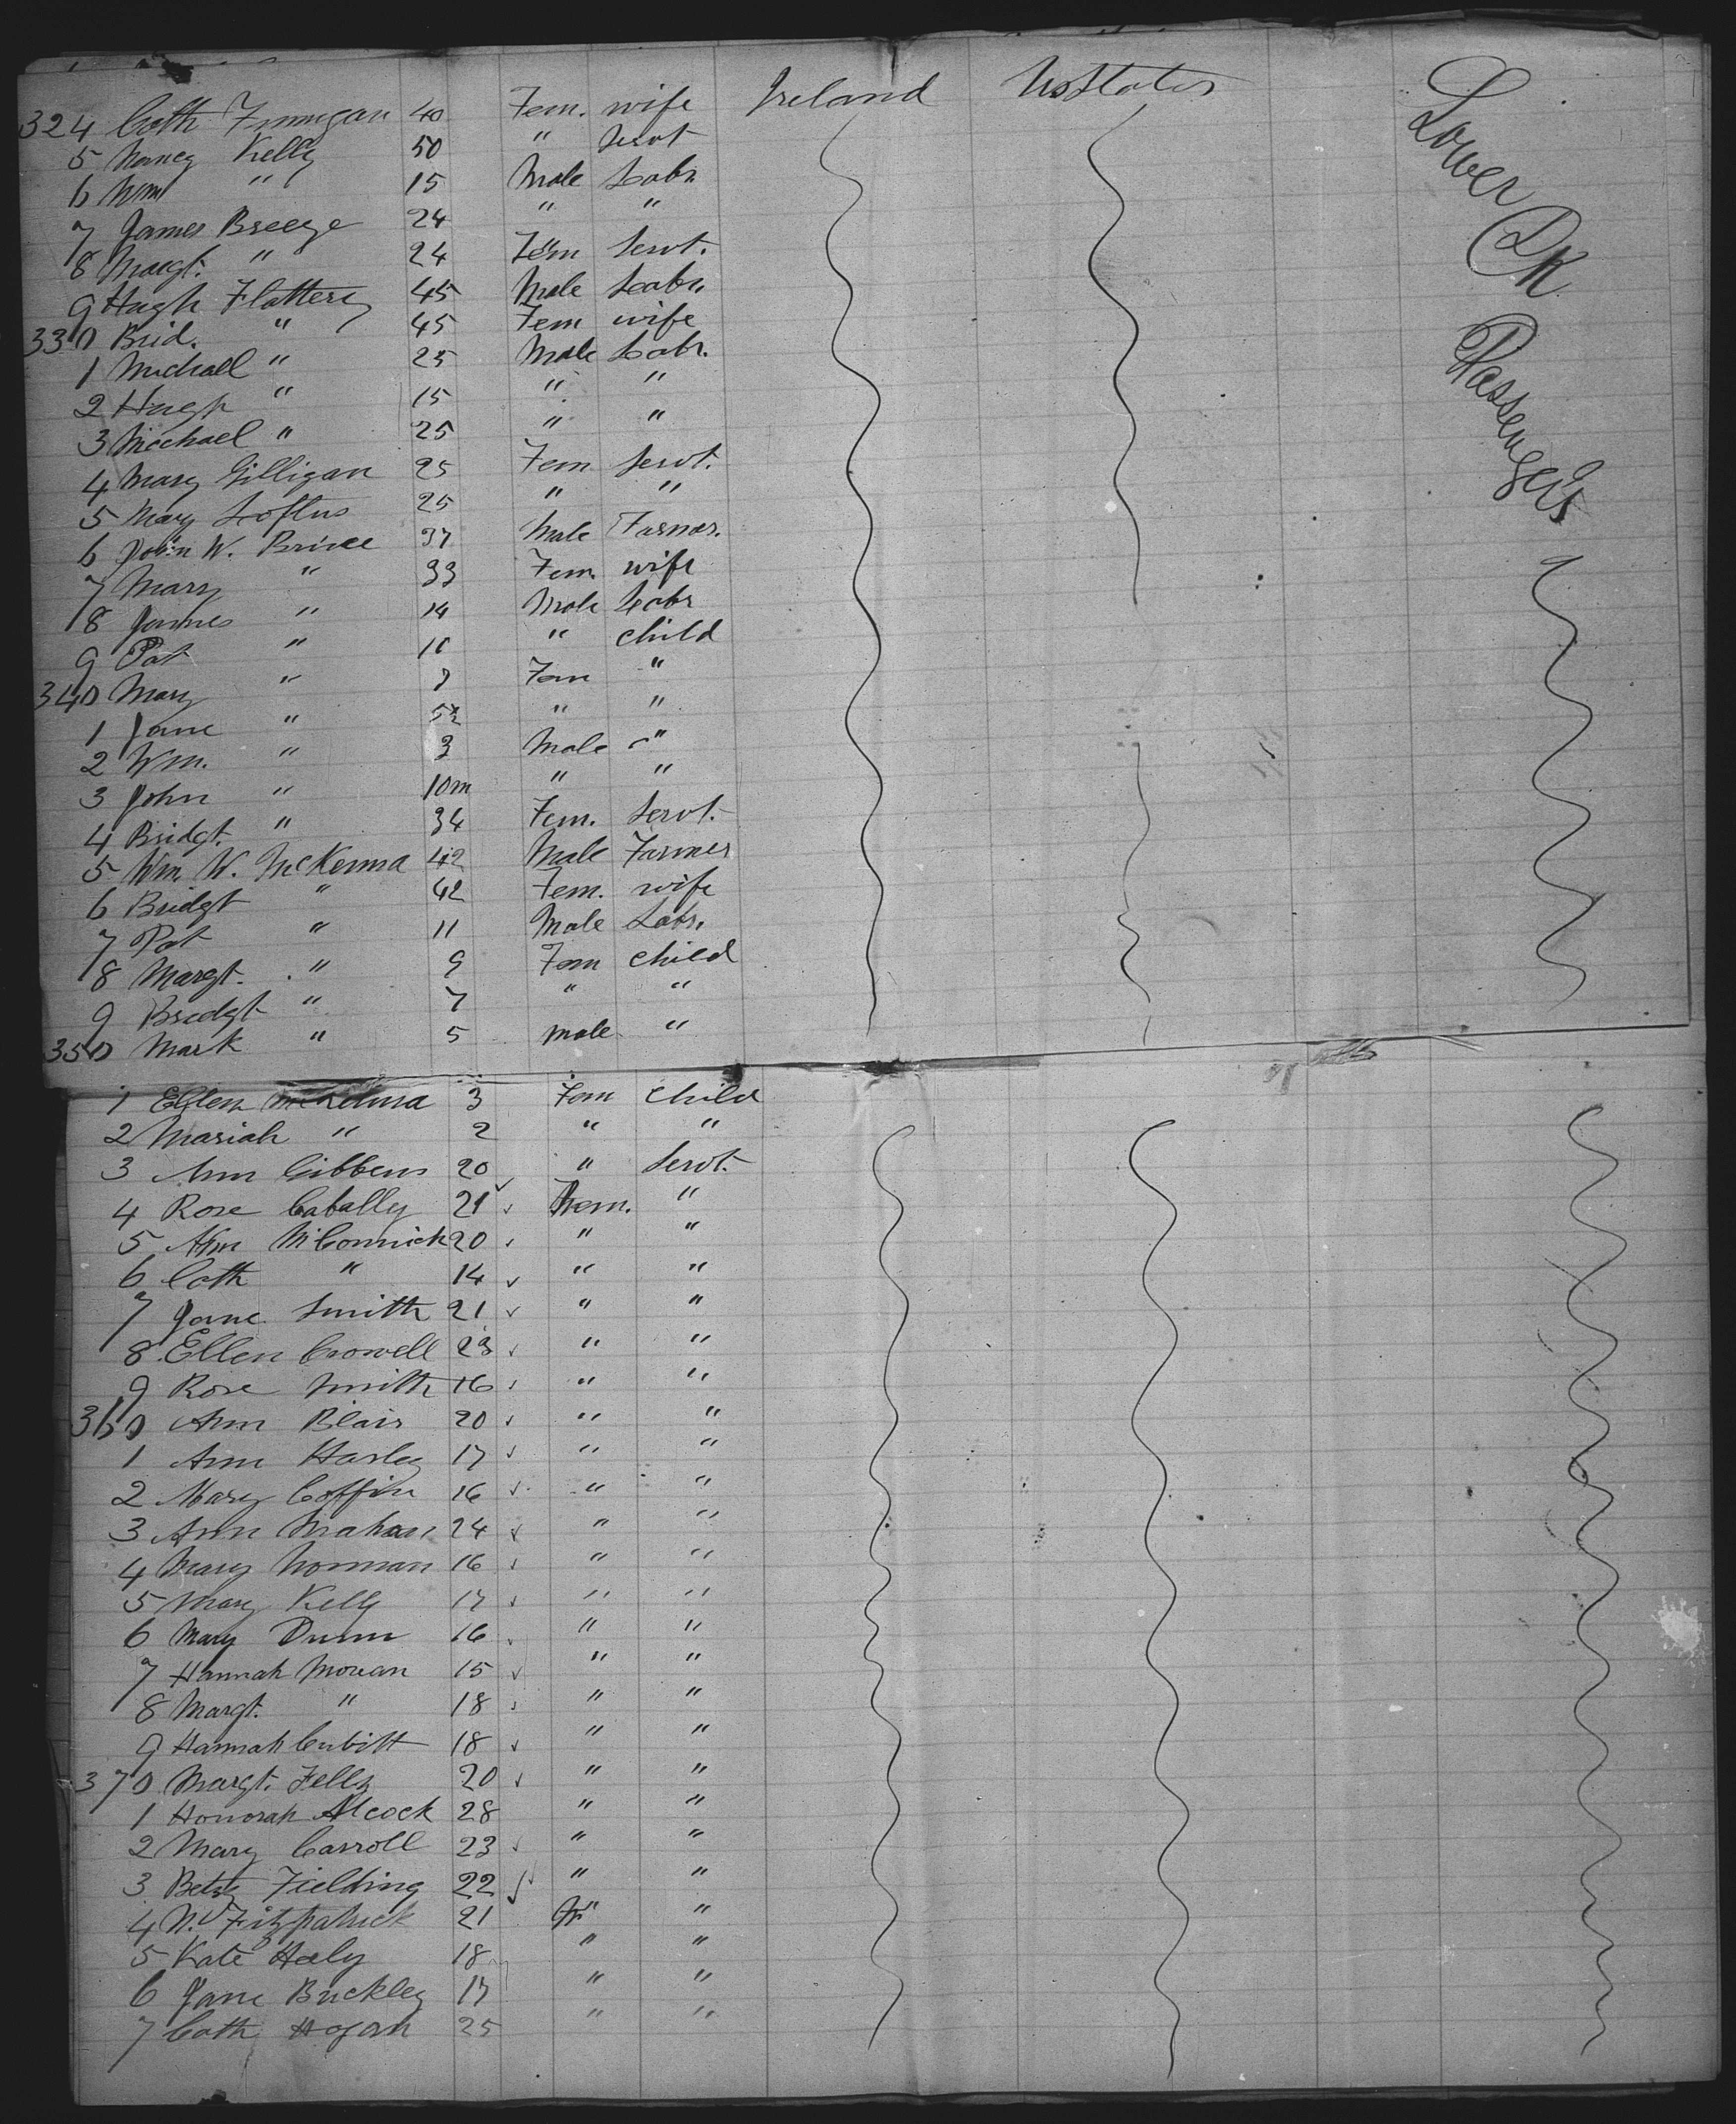 324 Cath Finnigan 40 Fem. wife Ireland U States Lower DK Passengers
5 Nancy Kelly 50 " Servt
6 Wm " 15 Male Labr
7 James Breeze 24 " "
8 Margt. " 24 Fem Servt.
9 Hugh Flattery 45 Male Labr.
330 Brid. " 45 Fem wife
1 Michael " 25 Male Labr.
2 Hugh " 15 " "
3 Michael " 25 " "
4 Mary Gilligan 25 Fem Servt.
5 Mary Loftus 25 " "
6 John W. 37 Male Farmer.
7 Mary " 33 Fem. wife
8 James " 14 Male Labr
9 Pat " " child
340 Mary " Fem "
1 Jane " " "
2 Wm. " 3 Male "
3 John " 10m " "
4 Bridgt. " 34 Fem. Servt.
5 Wm W. McKenna 42 Male Farmer
6 Bridgt " 42 Fem. wife
7 Pat " 11 Male Labr.
8 Margt. " 9 Fem child
9 Bredgt " 7 " "
350 Mark " 5 male "
1 Ellen McKenna 3 Fem Child
2 Mariah " 2 " "
3 Ann Gibbens 20 " Servt.
4 Rose Caball​y 21 Fem. "
5 Ann McConnick 20 " "
6 Cath " 14 " "
7 Jane Smith 21 " "
8 Ellen Crowell 23 " "
9 Rose Smith 16 " "
360 Ann Blair 20 " "
1 Ann Harley 17 " "
2 Mary Coffin 16 " "
3 Ann Mahan 24 " "
4 Mary Norman 16 " "
5 Mary Kelly 17 " "
6 Mary Dunn 16 " "
7 Hannah Moran 15 " "
8 Margt. " 18 " "
9 Hannah Cubitt 18 " "
370 Margt. Felly 20 " "
1 Honorah Alcock 28 " "
2 Mary Carroll 23 " "
3 Betsy Fielding 22 " "
4 Fitzpatrick 21 " "
5 Kate Haly 18 " "
6 Jane Buckley 17 " "
7 Cath Hogan 25 " "